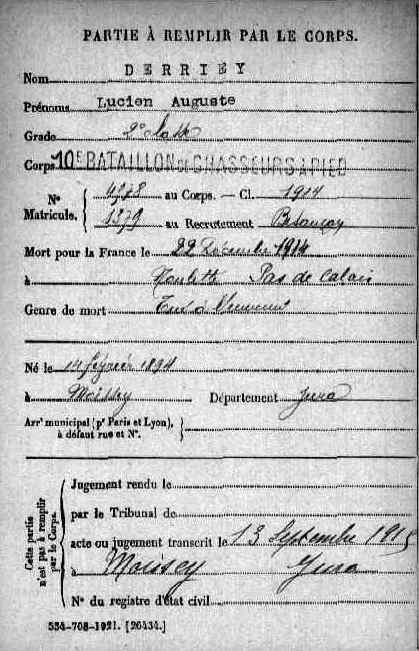 PARTIE À REMPLIR PAR LE CORPS.
Nom DERRIEY
Prénoms Lucien Auguste
Grade 2e classe
Corps 10E BATAILLON DE CHASSEURS A PIED
Nº Matricule. { 4978 au Corps. — Cl. 1914
1379 au Recrutement Besançon
Mort pour la France le 22 Décembre 1914
à Pas de Calais
Genre de mort Tué à l'ennemi
Né le 14 février 1894
à Moissey Département Jura
Arrt municipal (pr Paris et Lyon),
à défaut rue et Nº.
Cette partie
n'est pas à remplir
par le Corps.
Jugement rendu le
par le Tribunal de
acte ou jugement transcrit le 13 Septembre 1915
à Moissey Jura
Nº du registre d'état civil
534-708-1921. [26434.]